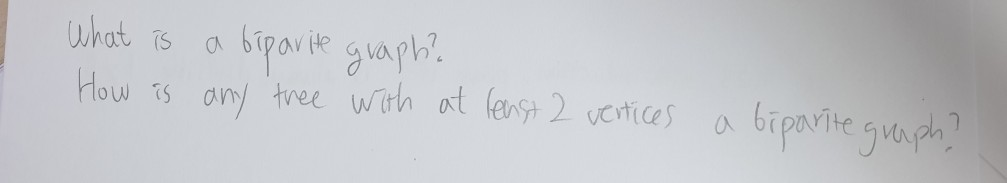 What is a biparite graph?
How is any tree with at least 2 vertices a biparite graph?